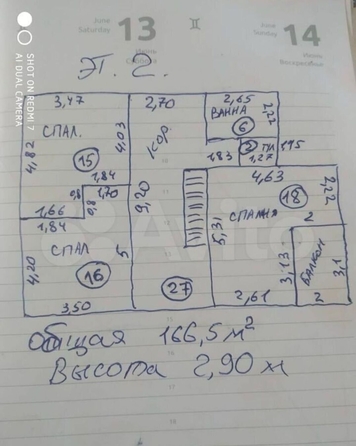 June
Saturday 13
Июнь
Суббота
June
Sunday 14
Июнь
Воскресенье
SHOT ON REDMI 7
AI DUAL CAMERA
Эт. 2.
3,47
2,70
2,65
ванна
2,22
6
СПАЛ.
4,03
Кор
4,82
15
2
1,83
1,27
1,84
4,63
0,8
1,70
0,8
9,20
18
2,22
1,66
1,84
5,31
спальня
2
СПАЛ
5
4,20
16
27
3,13
Балкон
3,1
3,50
2,61
2
Avito
общая 166,5 м²
Высота 2,90 м